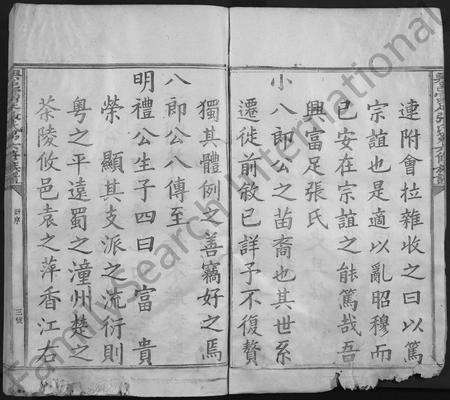 連附會拉雜收之曰以篤
宗誼也是適以亂昭穆而
已安在宗誼之能篤哉吾
興富足張氏
小八郎公之苗裔也其世系
遷徙前敘已詳予不復贅
獨其體例之善竊好之焉
八郎公八傳至
明禮公生子四曰 富 貴
榮 顯其支派之流衍則
粵之平遠蜀之潼州楚之
茶陵攸邑袁之萍香江右
FamilySearch International